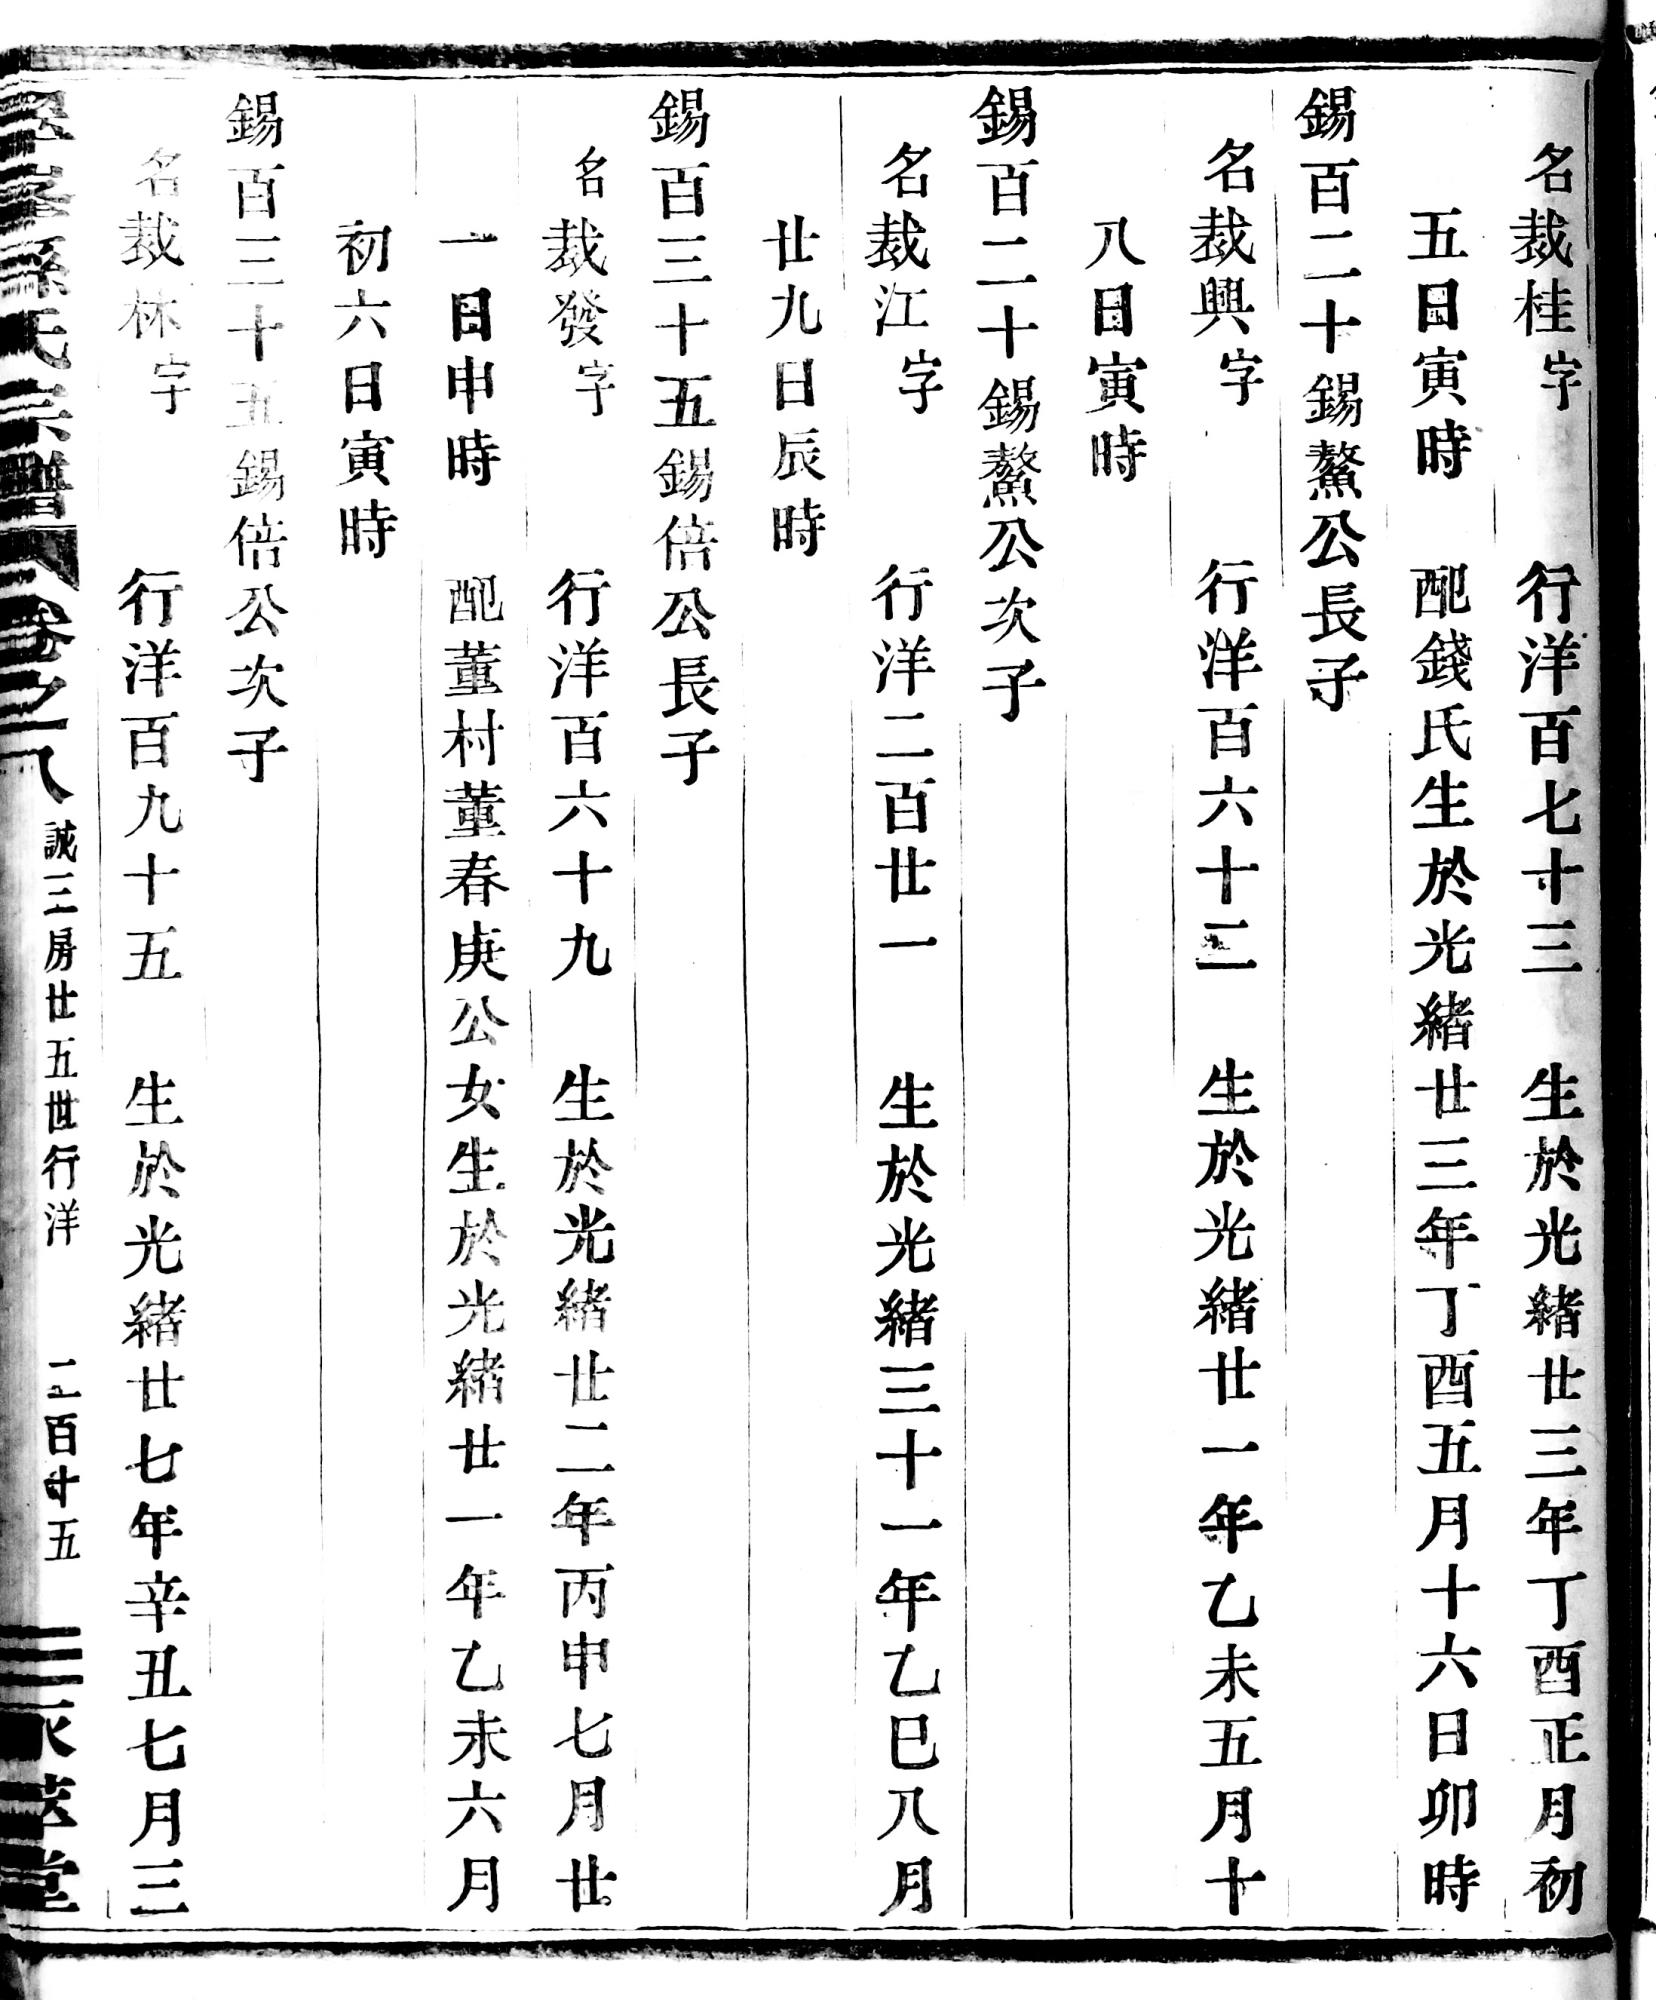 名裁桂字 行洋百七十三 生於光緒廿三年丁酉正月初
五日寅時 配錢氏生於光緒廿三年丁酉五月十六日卯時
錫百二十錫鰲公長子
名裁興字 行洋百六十二 生於光緒廿一年乙未五月十
八日寅時
錫百二十錫鰲公次子
名裁江字 行洋二百廿一 生於光緒三十一年乙巳八月
廿九日辰時
錫百三十五錫倍公長子
名裁發字 行洋百六十九 生於光緒廿二年丙申七月廿
一日申時 配董村董春庚公女生於光緒廿一年乙未六月
初六日寅時
錫百三十五錫倍公次子
名裁林字 行洋百九十五 生於光緒廿七年辛丑七月三
孫氏宗譜 卷之八 誠三房廿五世行洋 二百十五 堂